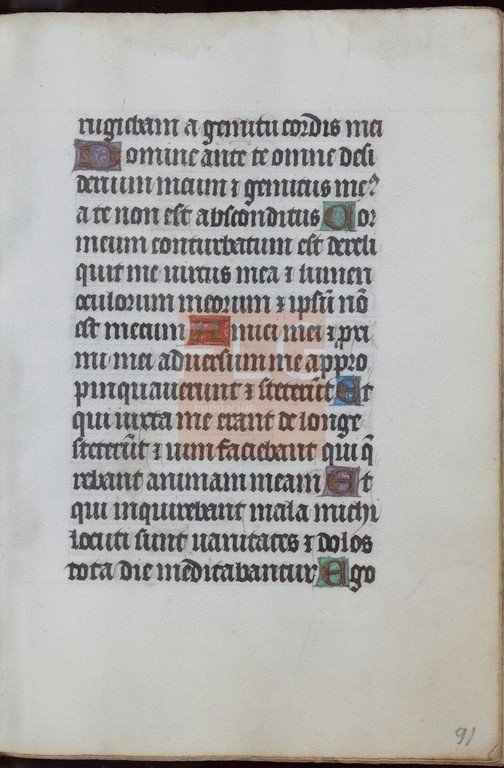 rugiebam a gemitu cordis mei
Domine ante te omne desi
derium meum ⁊ gemitus meꝰ
a te non est absconditus Cor
meum conturbatum est dereli
quit me uirtus mea ⁊ lumen
oculorum meorum ⁊ ipsū nō
est mecum Amici mei ⁊ pxi
mi mei aduersum me appro
pinquauerunt ⁊ steterūt Et
qui iuxta me erant de longe
steterūt ⁊ uim faciebant qui q̄
rebant animam meam Et
qui inquirebant mala michi
locuti sunt uanitates ⁊ dolos
tota die meditabantur Ego
91